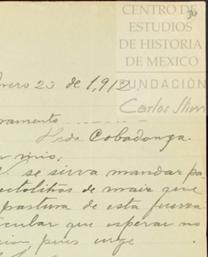 CENTRO DE
ESTUDIOS
DE HISTORIA
DE MEXICO
FUNDACIÓN
Carlos Slim
nero 23 de 1,912
ramento
Hda Cobadonga.
se sirva mandar pa
ctolitos de maiz que
pastura de esta fuerza
icular que esperar no
pues urge